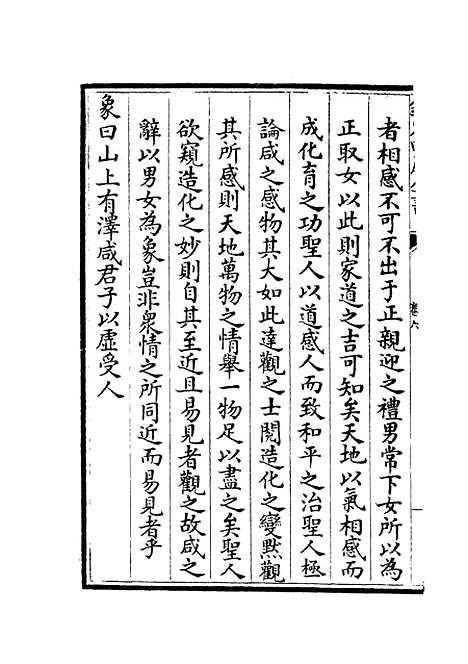 者相感不可不出于正親迎之禮男常下女所以為
正取女以此則家道之吉可知矣天地以氣相感而
成化育之功聖人以道感人而致和平之治聖人極
論咸之感物其大如此達觀之士閱造化之變黙觀
其所感則天地萬物之情舉一物足以盡之矣聖人
欲窺造化之妙則自其至近且易見者觀之故咸之
辭以男女為象豈非衆情之所同近而易見者乎
象曰山上有澤咸君子以虛受人
卷六